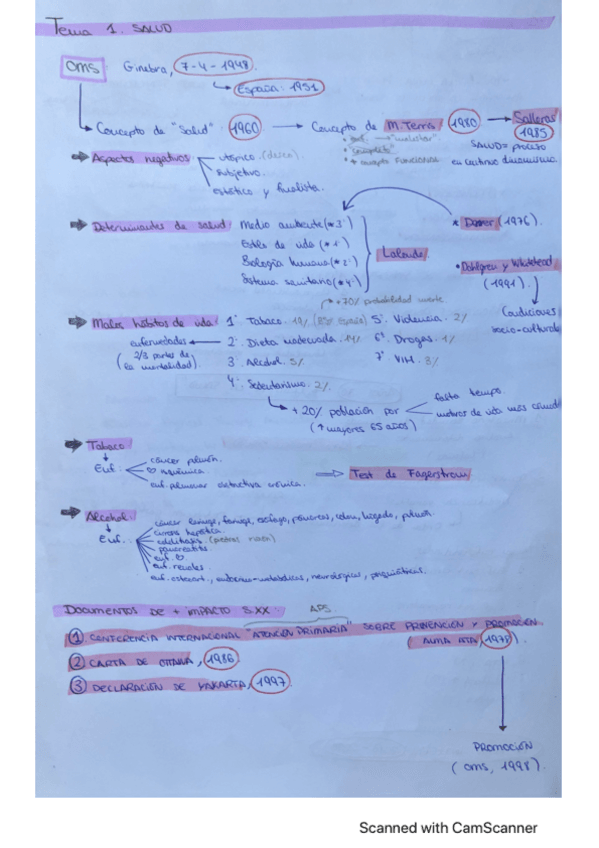 Tema 1. SALUD
OMS Ginebra, 7-4-1948.
España: 1951
Concepto de "Salud" 1960 → Concepto de M. Terris 1980 → Salleras 1985
"malestar".
"completo"
+ concepto FUNCIONAL
SALUD = proceso
en continuo dinamismo.
Aspectos negativos
utópico (deseo).
subjetivo.
estático y finalista.
Determinantes de salud Medio ambiente (*3)
Estilo de vida (*1)
Biología humana (*2)
Sistema sanitario (*4)
Lalonde.
* Denver (1976).
• Dahlgren y Whitehead
(1991).
Condiciones
socio-cultural
+70% probabilidad muerte
Malos hábitos de vida 1º Tabaco. España) 5º Violencia. 2%
enfermedades ← 2º Dieta inadecuada. 6º Drogas. 1%
(2/3 partes de
la mortalidad). 3º Alcohol. 7º VIH. 3%
4º Sedentarismo. 2%
+ 20% población por
(↑ mayores 65 años)
falta tiempo.
vida más
Tabaco
Enf.
cáncer pulmón.
♡ isquémica.
enf. pulmonar obstructiva crónica.
Test de Fagerstrom
Alcohol
Enf.
cáncer laringe, faringe, esófago, páncreas, colon, hígado, pulmón.
cirrosis hepática
(piedras riñón)
pancreatitis
enf. ♡
enf. renales.
enf. osteoart., endocrino-metabólicas, neurológicas, psiquiátricas.
DOCUMENTOS DE + IMPACTO S.XX: APS
1 CONFERENCIA INTERNACIONAL "ATENCIÓN PRIMARIA" SOBRE PREVENCIÓN Y PROMOCIÓN.
(ALMA ATA, 1978).
2 CARTA DE OTTAWA, 1986
3 DECLARACIÓN DE YAKARTA, 1997
PROMOCIÓN
(OMS, 1998).
Scanned with CamScanner